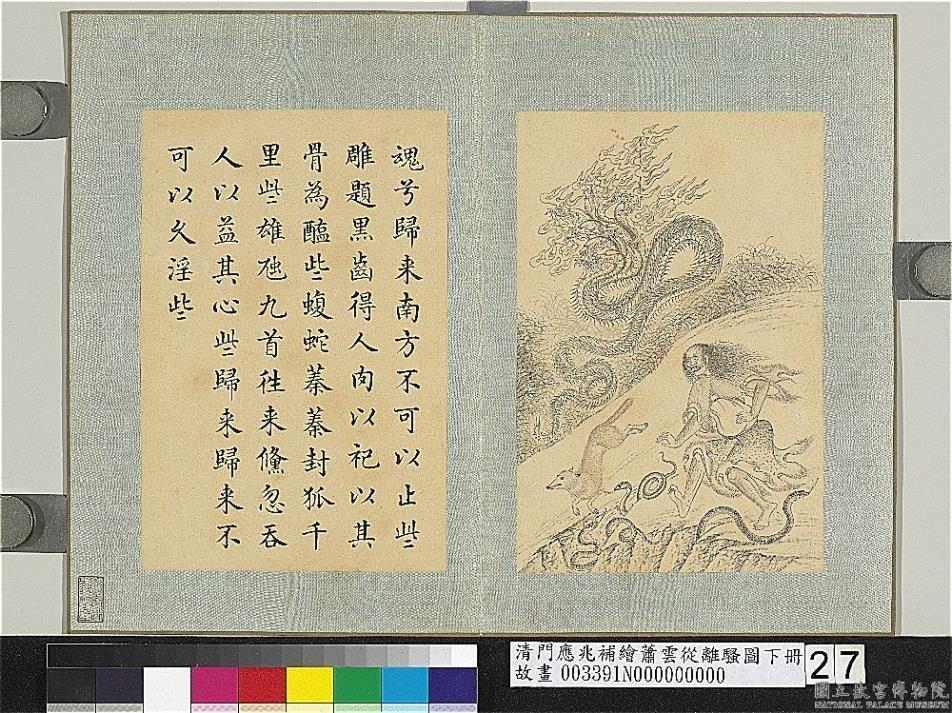 魂兮歸来南方不可以止些
雕題黒齒得人肉以祀以其
骨為醢些蝮蛇蓁蓁封狐千
里些雄虺九首徃来儵忽吞
人以益其心些歸来歸来不
可以久淫些
清門應兆補繪蕭雲從離騷圖下冊
故畫 003391N000000000
27
國立故宮博物院
NATIONAL PALACE MUSEUM